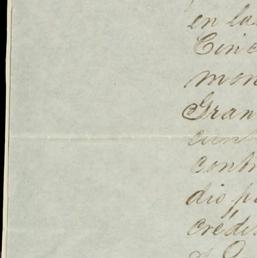 en la
Cinc
mon
Gran
cont
dio p
crédi